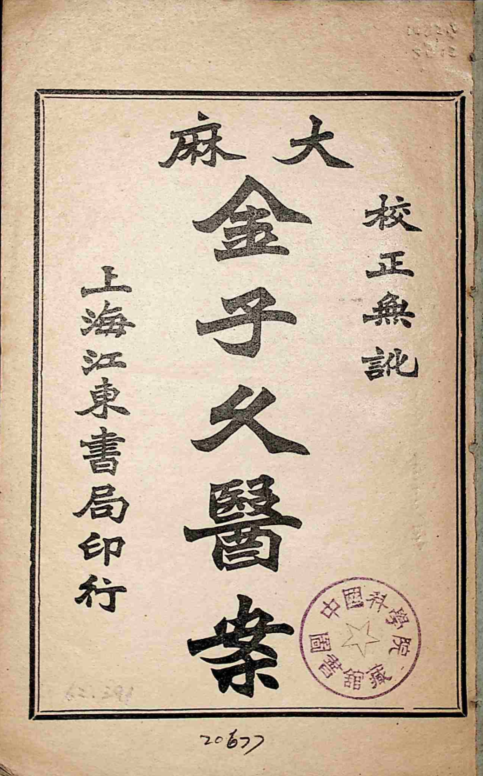 大麻
校正無訛
金子久醫案
上海江東書局印行
中國科學院
圖書館藏
20677